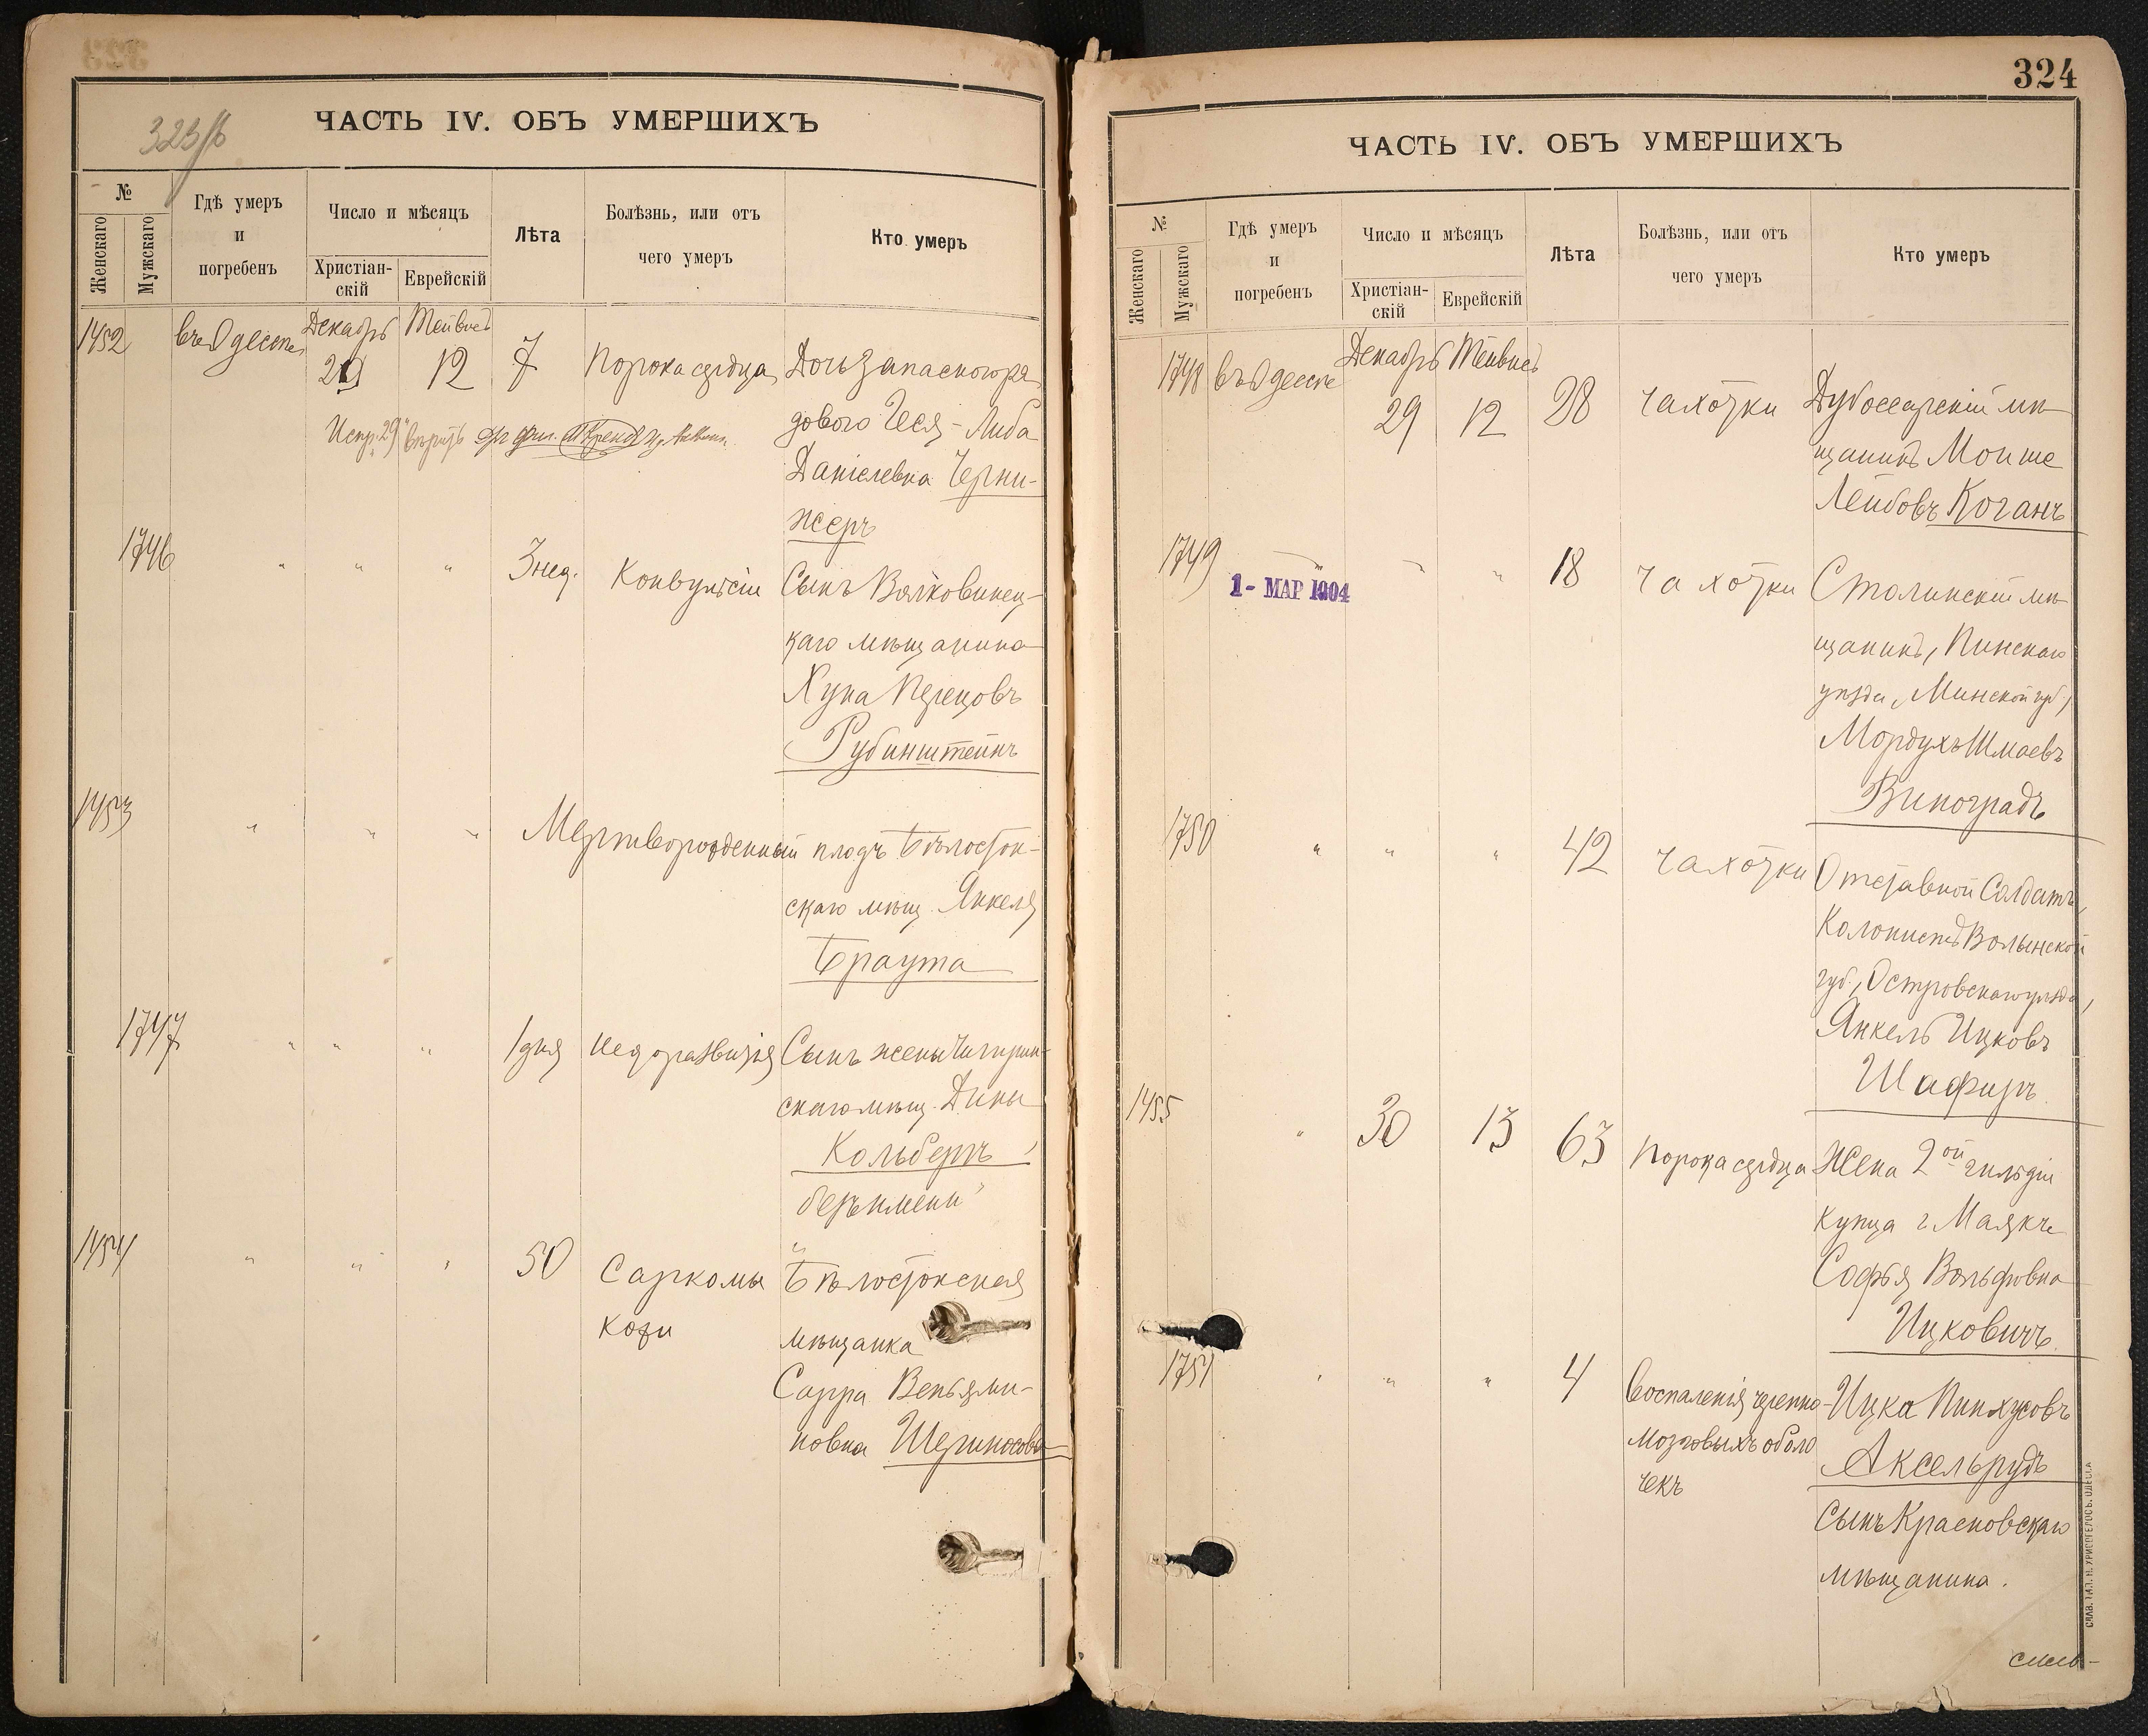 323/б
ЧАСТЬ IV. ОБЪ УМЕРШИХЪ
№
Женскаго
Мужскаго
Гдѣ умеръ
и
погребенъ
Число и мѣсяцъ
Христіан-
скій
Еврейскій
Лѣта
Болѣзнь, или отъ
чего умеръ
Кто умеръ
1452 въ Одессѣ Декабрь 29 Тейвес 12 7 Порока сердца Дочь запасного ря
дового Чеся-Либа
Испр. "29" вѣрить
Даніелевна Черни-
жеръ
1746 " " " 3 нед. Конвульсіи Сынъ Волковинец-
каго мѣщанина
Хуна Перецовъ
Рубинштейнъ
1453 " " " Мертворожденный плодъ Бѣлосток-
скаго мѣщ. Янкеля
Браута
1747 " " " 1 дня Недоразвитія Сынъ жены Чигирин-
скаго мѣщ. Дины
Кольберъ
безъ имени
1454 " " " 50 Саркомы Бѣлостокская
кожи мѣщанка
Сарра Веньями-
новна
324
ЧАСТЬ IV. ОБЪ УМЕРШИХЪ
№
Женскаго
Мужскаго
Гдѣ умеръ
и
погребенъ
Число и мѣсяцъ
Христіан-
скій
Еврейскій
Лѣта
Болѣзнь, или отъ
чего умеръ
Кто умеръ
1748 въ Одессѣ Декабрь 29 Тейвес 12 28 Чахотки Дубоссарскій мѣ-
щанинъ Моише
Лейбовъ Коганъ
1749 " " " 18 Чахотки Столинскій мѣ-
1- МАР 1904
щанинъ, Пинскаго
уѣзда, Минской губ.,
Мордухъ Шмаевъ
Виноградъ
1750 " " " 42 Чахотки Отставной Солдатъ,
Колонистъ Волынской
губ., Островскаго уѣзда,
Янкель Ицковъ
Шафиръ
1455 " 30 13 63 Порока сердца Жена 2ой гильдіи
купца г. Маякъ
Софья Вольфовна
Ицковичъ
1751 " " " 4 Воспаленія черепно- Ицка Пинхусовъ
мозговыхъ оболо Аксельрудъ
чекъ
Сынъ Красновскаго
мѣщанина.
СЛАВ. ТИП. Н. ХРИСОГЕЛОСЪ. ОДЕССА